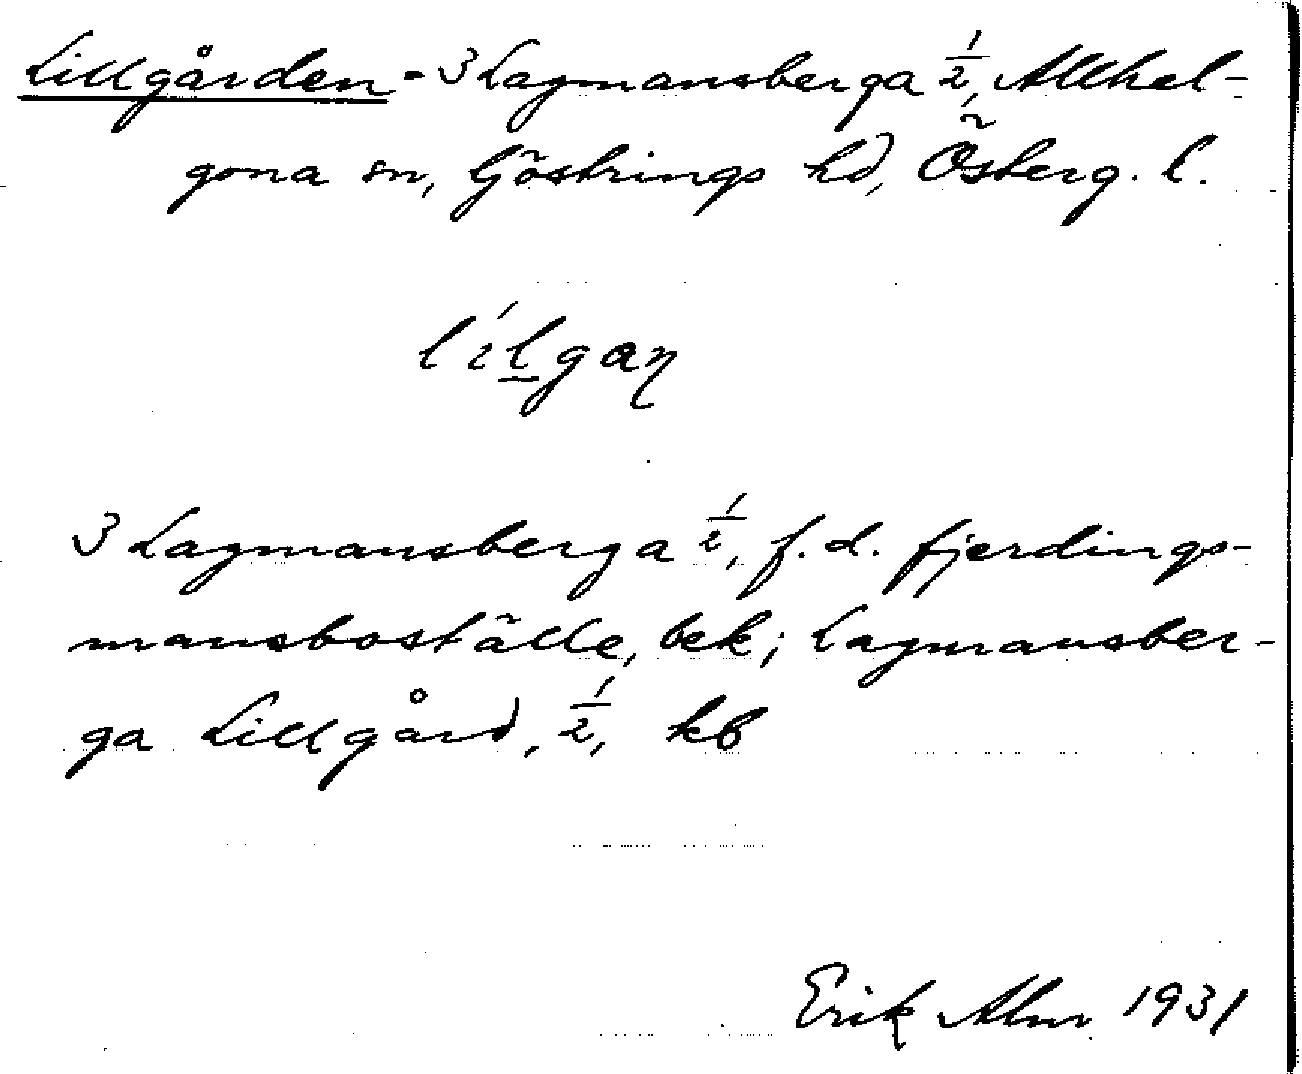 Lillgården - 3 Lagmansberga 1/2, Allhel-
gona sn, Göstrings hd, Österg. l.
lílgaɳ
3 Lagmansberga 1/2, f.d. fjerdings-
mansboställe, bek; Lagmansber-
ga Lillgård, 1/2, kb
Erik Alm 1931